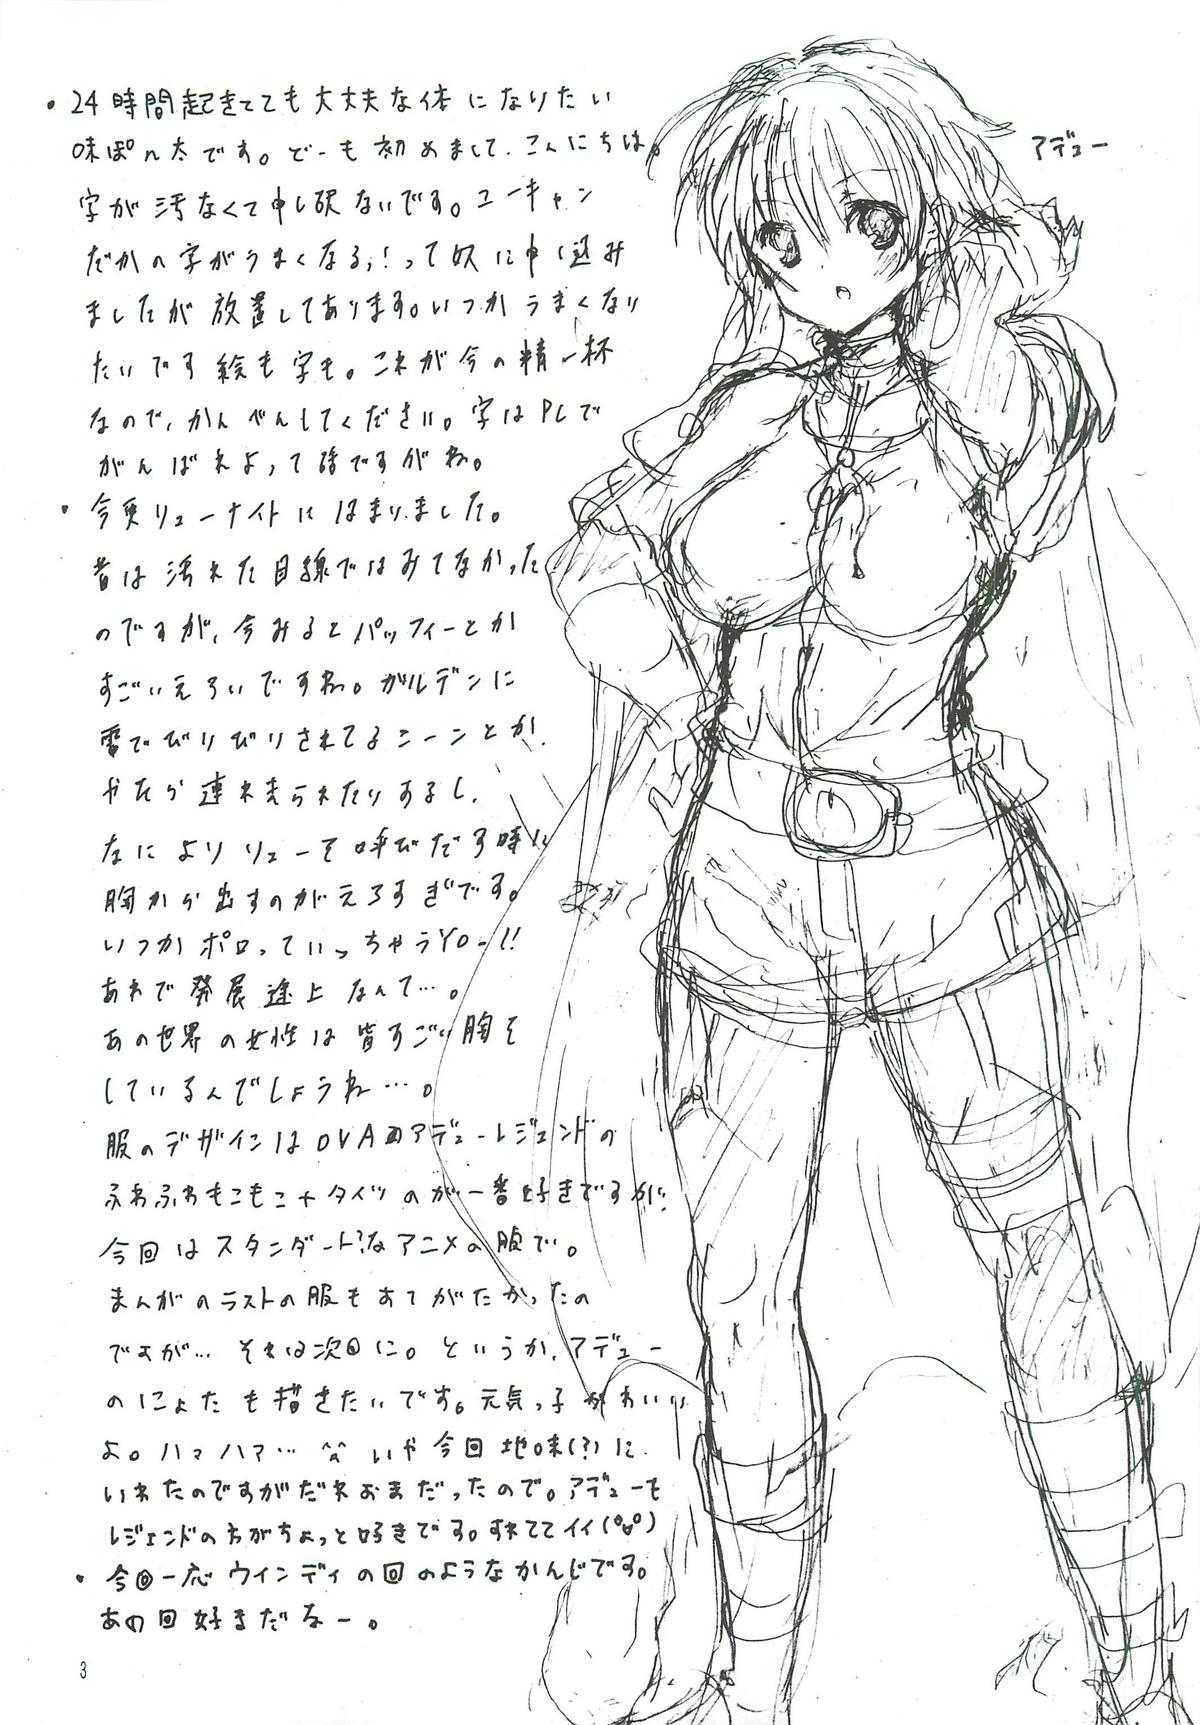 ・24時間起きてても大丈夫な体になりたい
味ぽん太です。どーも初めまして、こんにちは。
字が汚なくて申し訳ないです。ユーキャン
だかの字がうまくなるっ!って奴に申し込み
ましたが放置してあります。いつかうまくなり
たいです絵も字も。これが今の精一杯
なので、かんべんしてください。字はPCで
がんばれよって話ですがね。
・今更リューナイトにはまりました。
昔は汚れた目線ではみてなかった
のですが、今みるとパッフィーとか
すごいえろいですね。ガルデンに
雷でびりびりされてるシーンとか
やたら連れ去られたりするし、
なによりリューを呼びだす時に
胸から出すのがえろすぎです。
いつかポロっていっちゃうYO-!!
あれで発展途上なんて…。
あの世界の女性は皆すごい胸を
しているんでしょうね…。
服のデザインはOVAのアデューレジェンドの
ふわふわもこもこ+タイツのが一番好きですが、
今回はスタンダード?なアニメの服で。
まんがのラストの服もすてがたかったの
ですが… それは次回に。というか、アデュー
のにょたも描きたいです。元気っ子かわいい
よ。ハァハァ… ^^ いや今回地味(?)に
いれたのですがだれおまだったので。アデューも
レジェンドの方がちょっと好きです。すれててイイ(°∀°)
・今回一応ウインディの回のようなかんじです。
あの回好きだなー。
アデュー
3